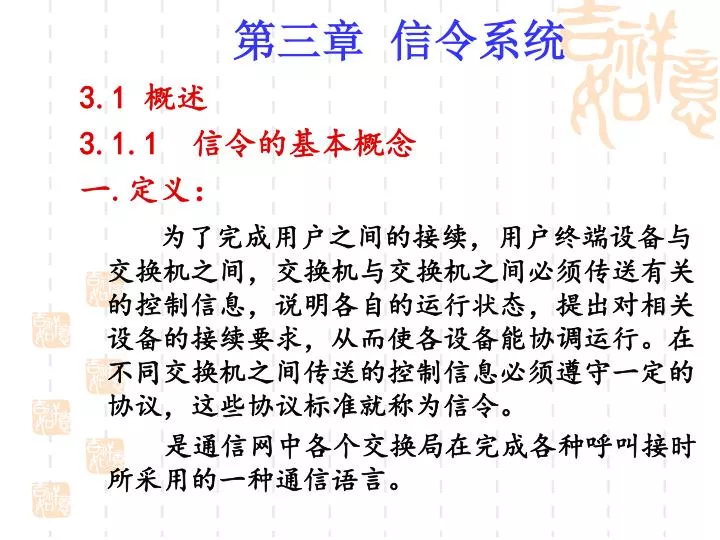 第三章 信令系统
吉祥如意
3.1 概述
3.1.1 信令的基本概念
一.定义：
为了完成用户之间的接续，用户终端设备与
交换机之间，交换机与交换机之间必须传送有关
的控制信息，说明各自的运行状态，提出对相关
设备的接续要求，从而使各设备能协调运行。在
不同交换机之间传送的控制信息必须遵守一定的
协议，这些协议标准就称为信令。
是通信网中各个交换局在完成各种呼叫接时
所采用的一种通信语言。